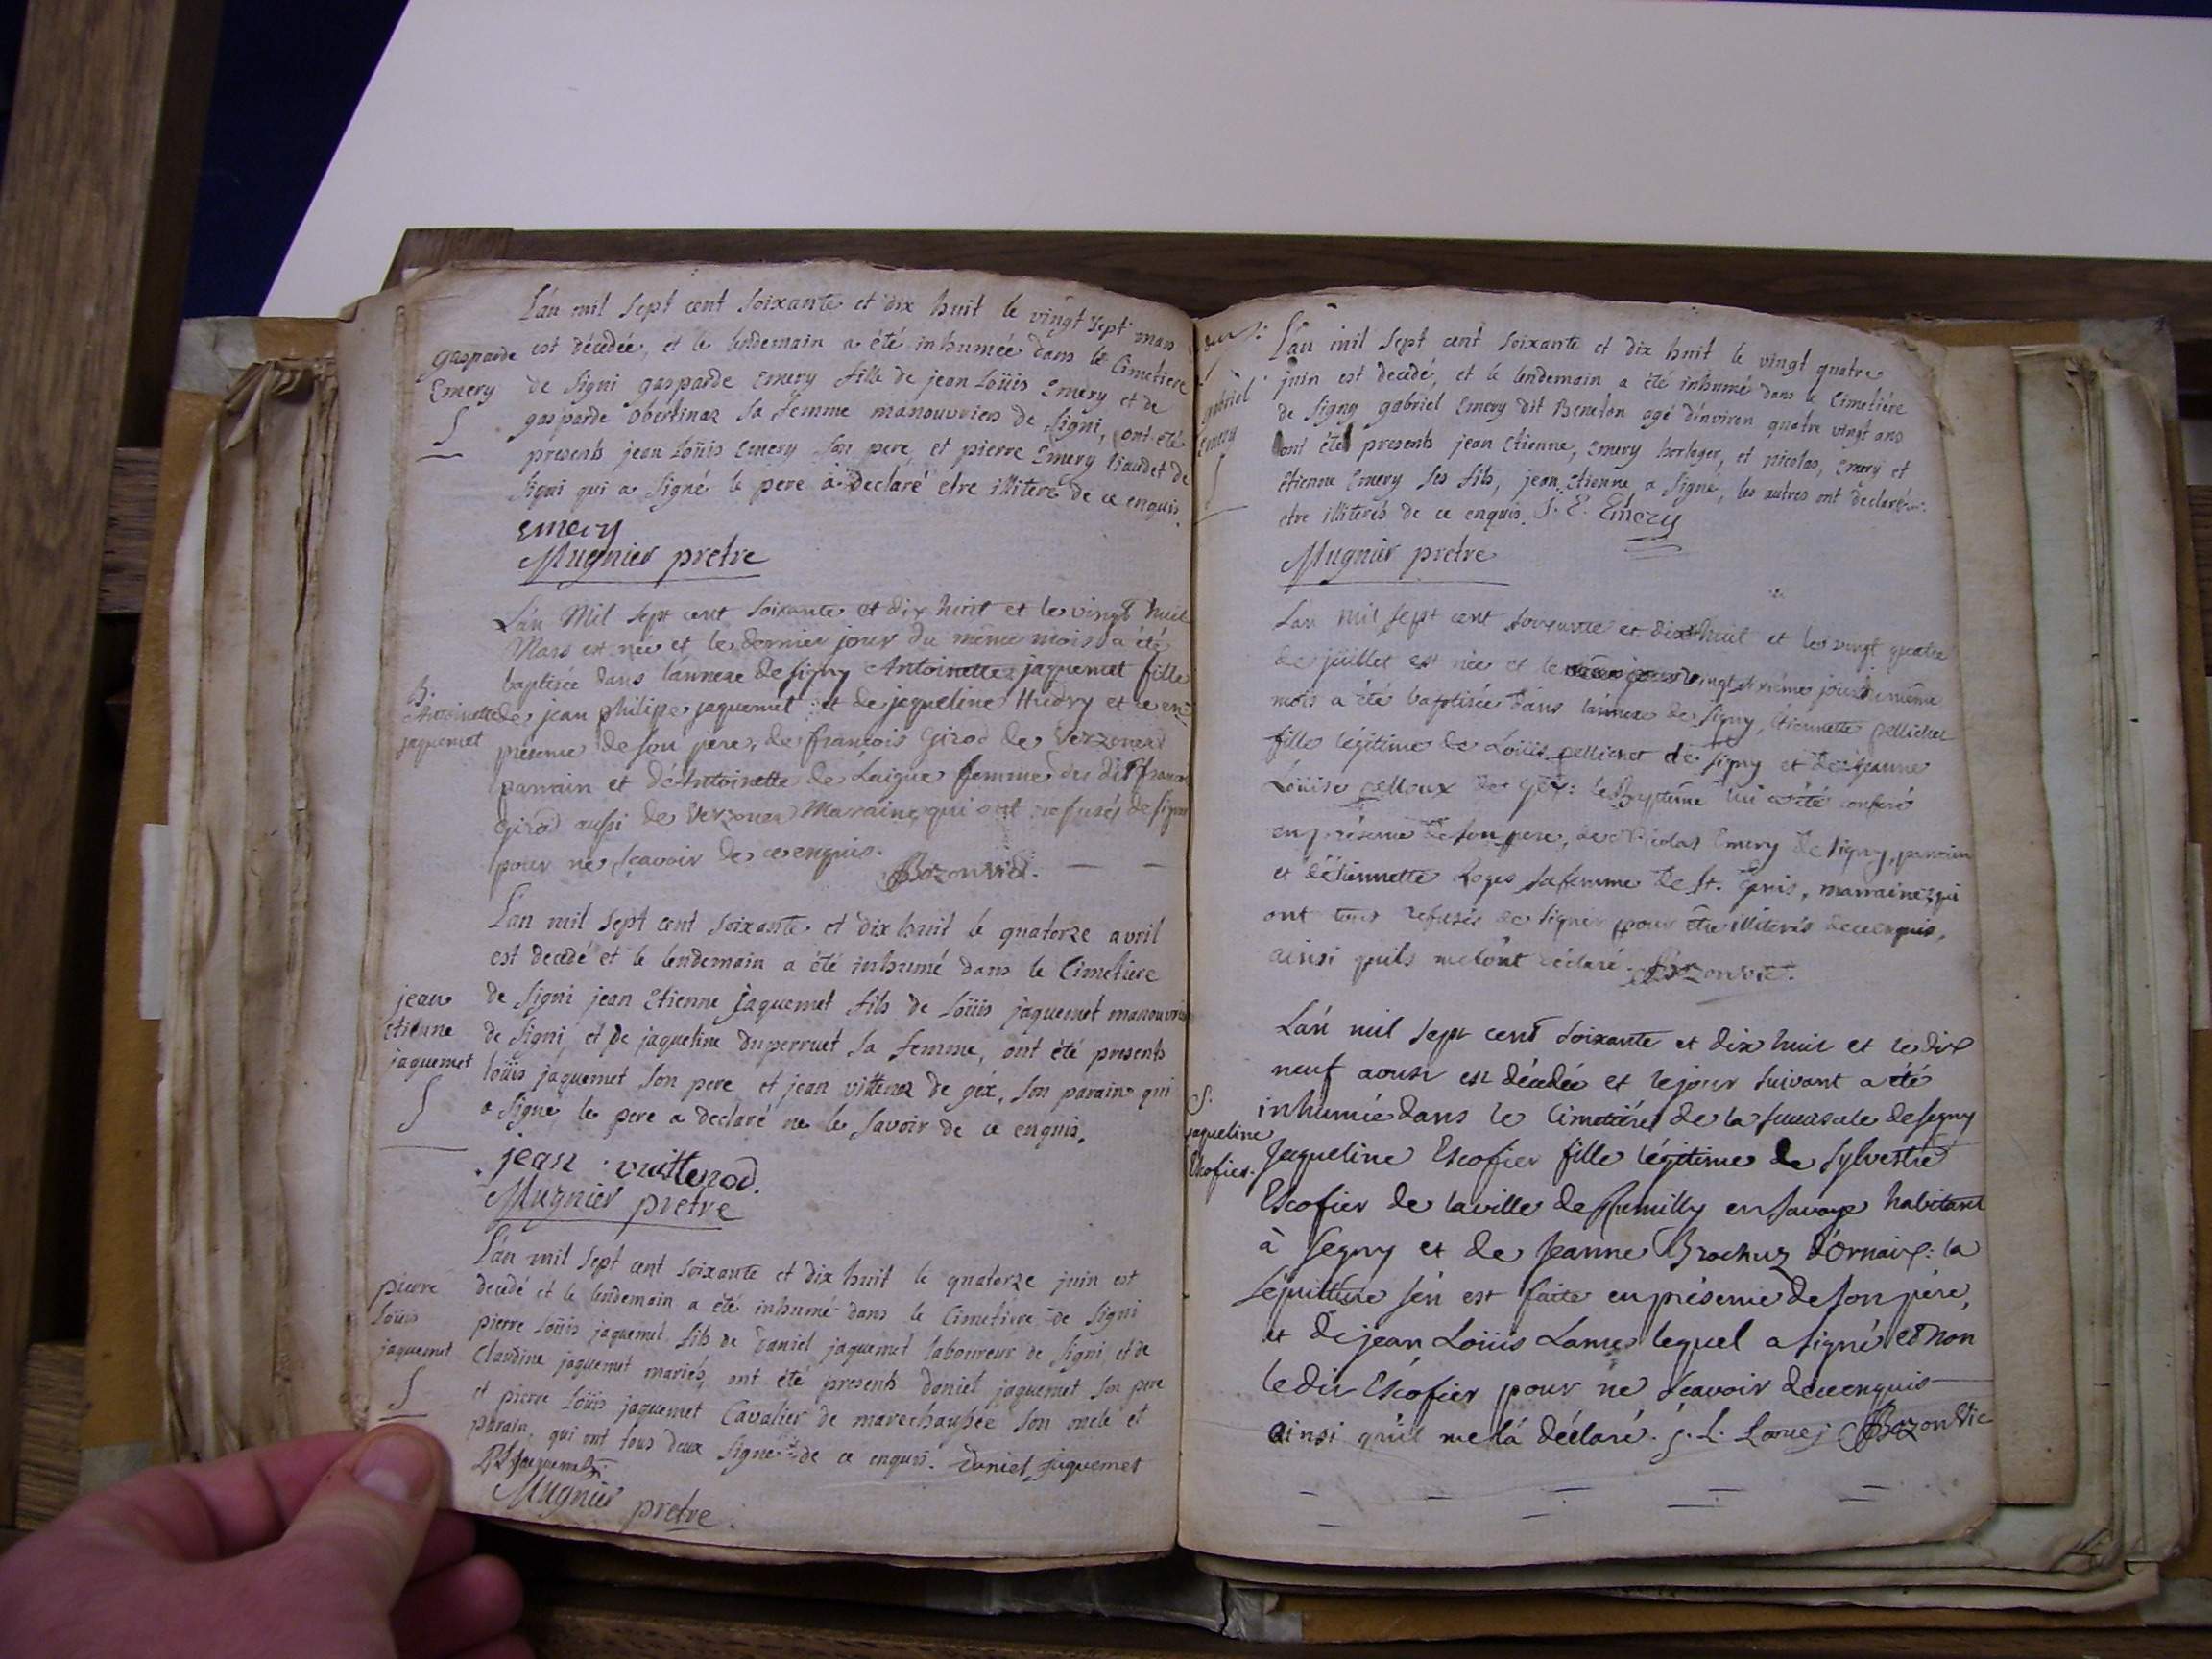 L'an mil sept cent soixante et dix huit le vingt sept mars
est décedée, et le lendemain a été inhumée dans le Cimetiere
de Signi gasparde Emery fille de jean Loüis Emery et de
gasparde obertinaz sa femme manouvriers de Signi, ont été
presents jean Loüis Emery son pere, et pierre Emery baudet de
Signi qui a signé le pere a declaré etre illiteré de ce enquis.
gasparde
Emery
S
Emery
Mugnier pretre
L'an Mil sept cent soixante et dix huit et le vingt huit
Mars est née et le dernier jour du même mois a été
baptisée dans l'annexe de signy Antoinette jaquemet fille
de jean philipe jaquemet et de jaqueline Hudry et ce en
présence de son pere, de françois Girod de Verzonex
parrain et d'Antoinette de Laigue femme du dit françois
Girod aussi de Verzonex Maraine qui ont refusés de signer
pour ne sçavoir de ce enquis.
B.
Antoinette
jaquemet
Bozonvid.
L'an mil sept cent soixante et dix huit le quatorze avril
est decedé et le lendemain a été inhumé dans le Cimetiere
de Signi jean Etienne jaquemet fils de Loüis jaquemet manouvrier
de Signi, et de jaqueline duperruet sa femme, ont été presents
loüis jaquemet son pere et jean vittenoz de géx, son parain qui
a signé, le pere a declaré ne le savoir de ce enquis.
jean
Etienne
jaquemet
S
jean vuittenod.
Mugnier pretre
L'an mil sept cent soixante et dix huit le quatorze juin est
decedé et le lendemain a été inhumé dans le Cimetiere de Signi
pierre Loüis jaquemet fils de Daniel jaquemet laboureur de Signi et de
Claudine jaquemet mariés, ont été presents daniel jaquemet son pere
et pierre Loüis jaquemet Cavalier de marechaussée son oncle et
parain, qui ont tous deux signé de ce enquis. Daniel jaquemet
pierre
Loüis
jaquemet
S
P L jaquemet
Mugnier pretre.
L'an mil sept cent soixante et dix huit le vingt quatre
juin est decedé, et le lendemain a été inhumé dans le Cimetiére
de Signy gabriel Emery dit Beneton agé d'environ quatre vingt ans
ont été presents jean Etienne, Emery horloger, et nicolas, Emery et
Etienne Emery ses fils, jean Etienne a signé, les autres ont declaré
etre illiterés de ce enquis. J. E. Emery
gabriel
Emery
S
Mugnier pretre
L'an mil sept cent soixante et dix huit et le vingt quatre
de juillet est née et le vingt sixième jour du même
mois a été baptisée dans l'annexe de Signy, Etiennette pellichet
fille légitime de Loüis pellichet de signy et de jeanne
Loüise pelloux de Gex: le Baptême lui a été conferé
en présence de son pere, de Nicolas Emery de signy, parrain
et d'étiennette Roges sa femme de St. Genis, marraine qui
ont tous refusés de signer pour être illiterés de ce enquis,
ainsi quils me l'ont déclaré. Bozonvid.
L'an mil sept cent soixante et dix huit et le dix
neuf aoust est décedée et le jour suivant a été
inhumée dans le Cimetiére de la succursale de segny
Jaqueline Escofier fille légitime de Sylvestre
Escofier de la ville de Rumilly en Savoye habitant
à Segny et de Jeanne Brochuz d'Ornaix: la
sépulture s'en est faite en présence de son pére,
et de jean Loüis Lame lequel a signé et non
le dit Escofier pour ne sçavoir de ce enquis
ainsi qu'il me l'a déclaré. J. L. Bozonvid
S.
jaqueline
Escofier.